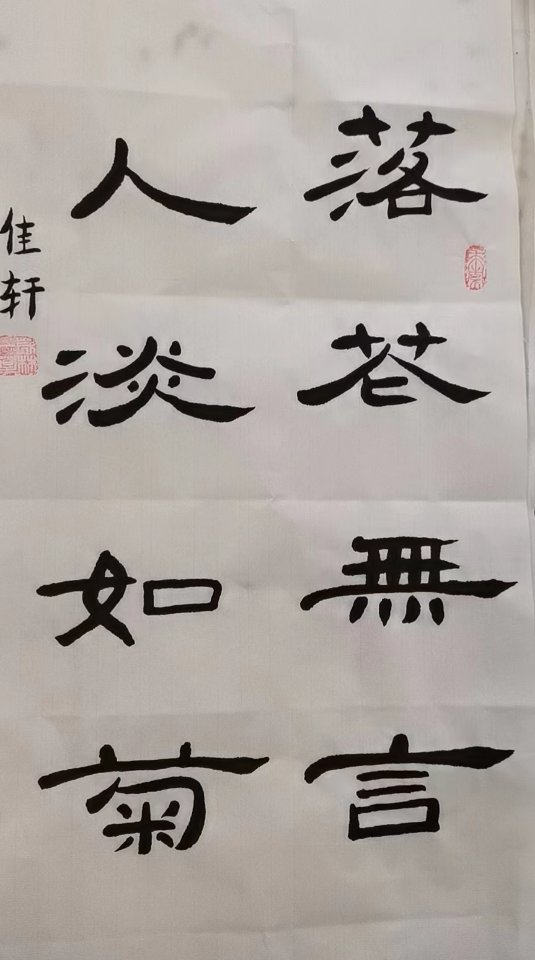 落花無言
人淡如菊
佳轩